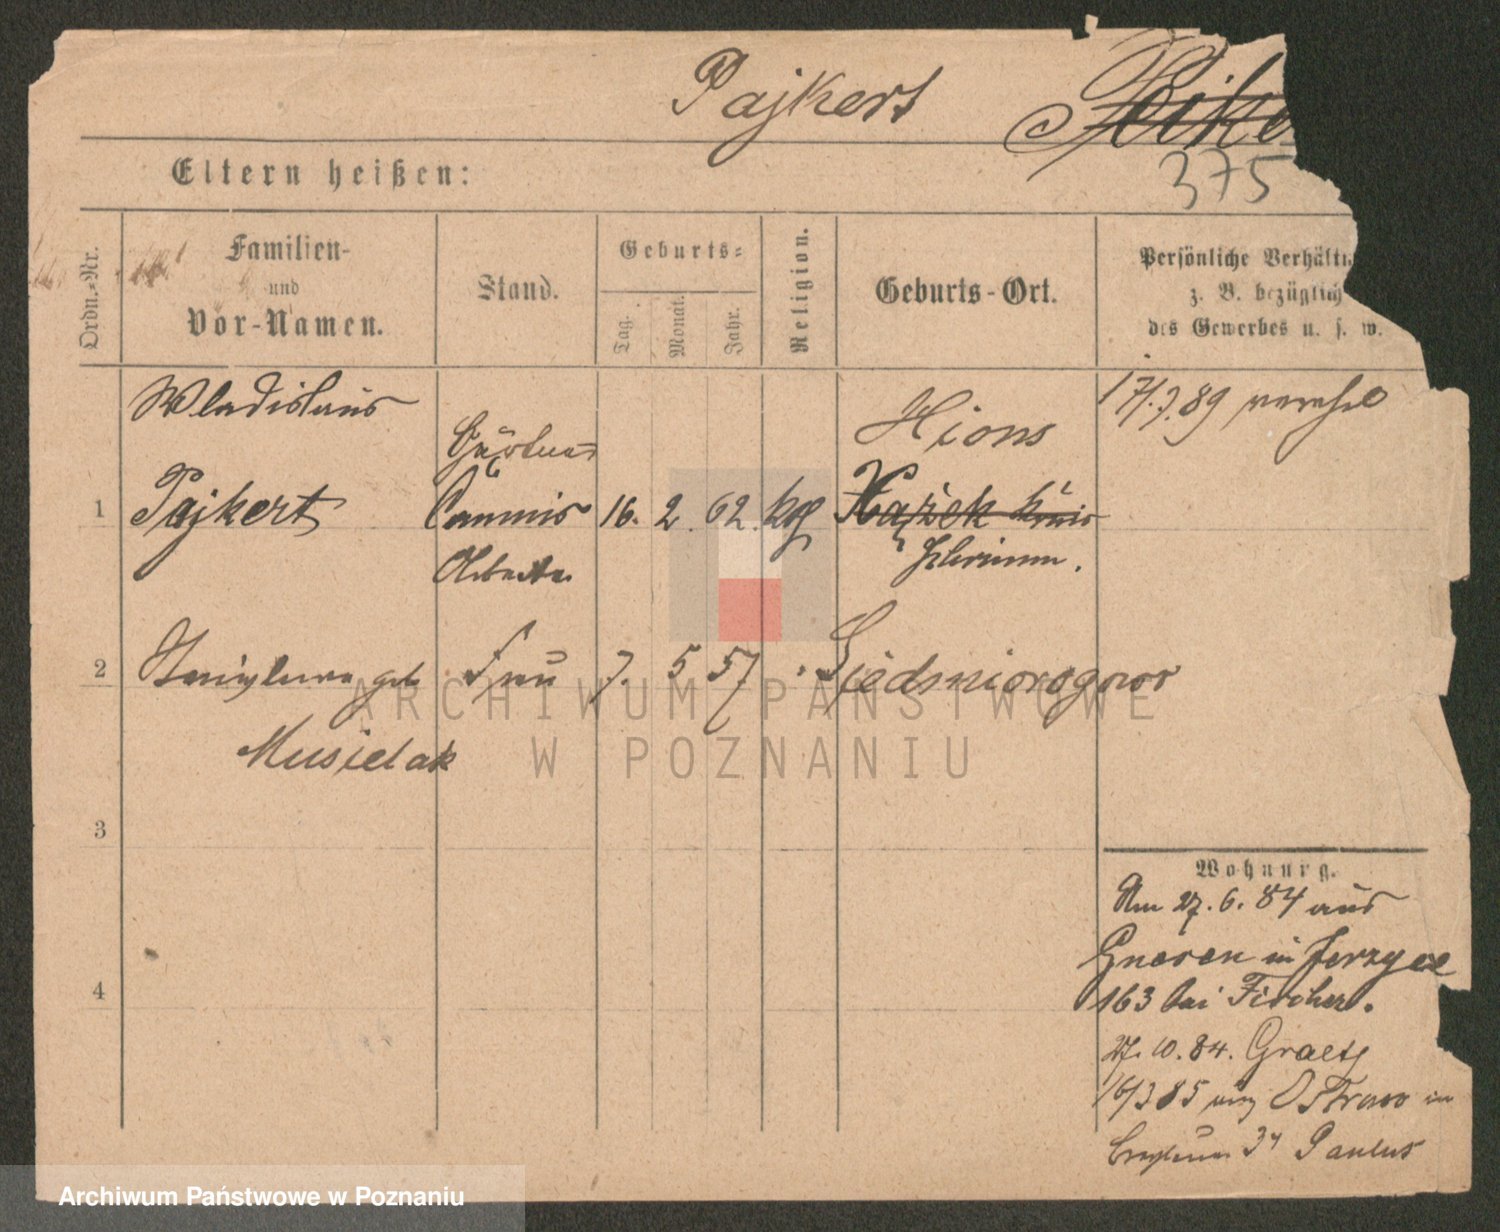 Pajkert
375
Eltern heißen:
Ordn.-Nr.
Familien-
und
Vor-Namen.
Stand.
Geburts-
Tag.
Monat.
Jahr.
Religion.
Geburts-Ort.
Persönliche
z. B. bezüglich
des Gewerbes u. s. w.
Wladislaus
Gärtner
Hions
17/.7.89
1
Pajkert
Commis
16. 2. 62. kg
Arbeiter
Schrimm.
2
geb
Frau
7. 5 57
Siedmiorogowo
Musielak
3
4
Wohnung.
Am 27. 6. 84 aus
Gnesen in Jerzyce
163 bei Fischer.
27. 10. 84. Graetz
16/3 85 Ostrowo in
Paulus
ARCHIWUM PAŃSTWOWE
W POZNANIU
Archiwum Państwowe w Poznaniu